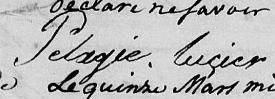 déclaré ne savoir
Pélagie Lucier
Le quinze Mars mi